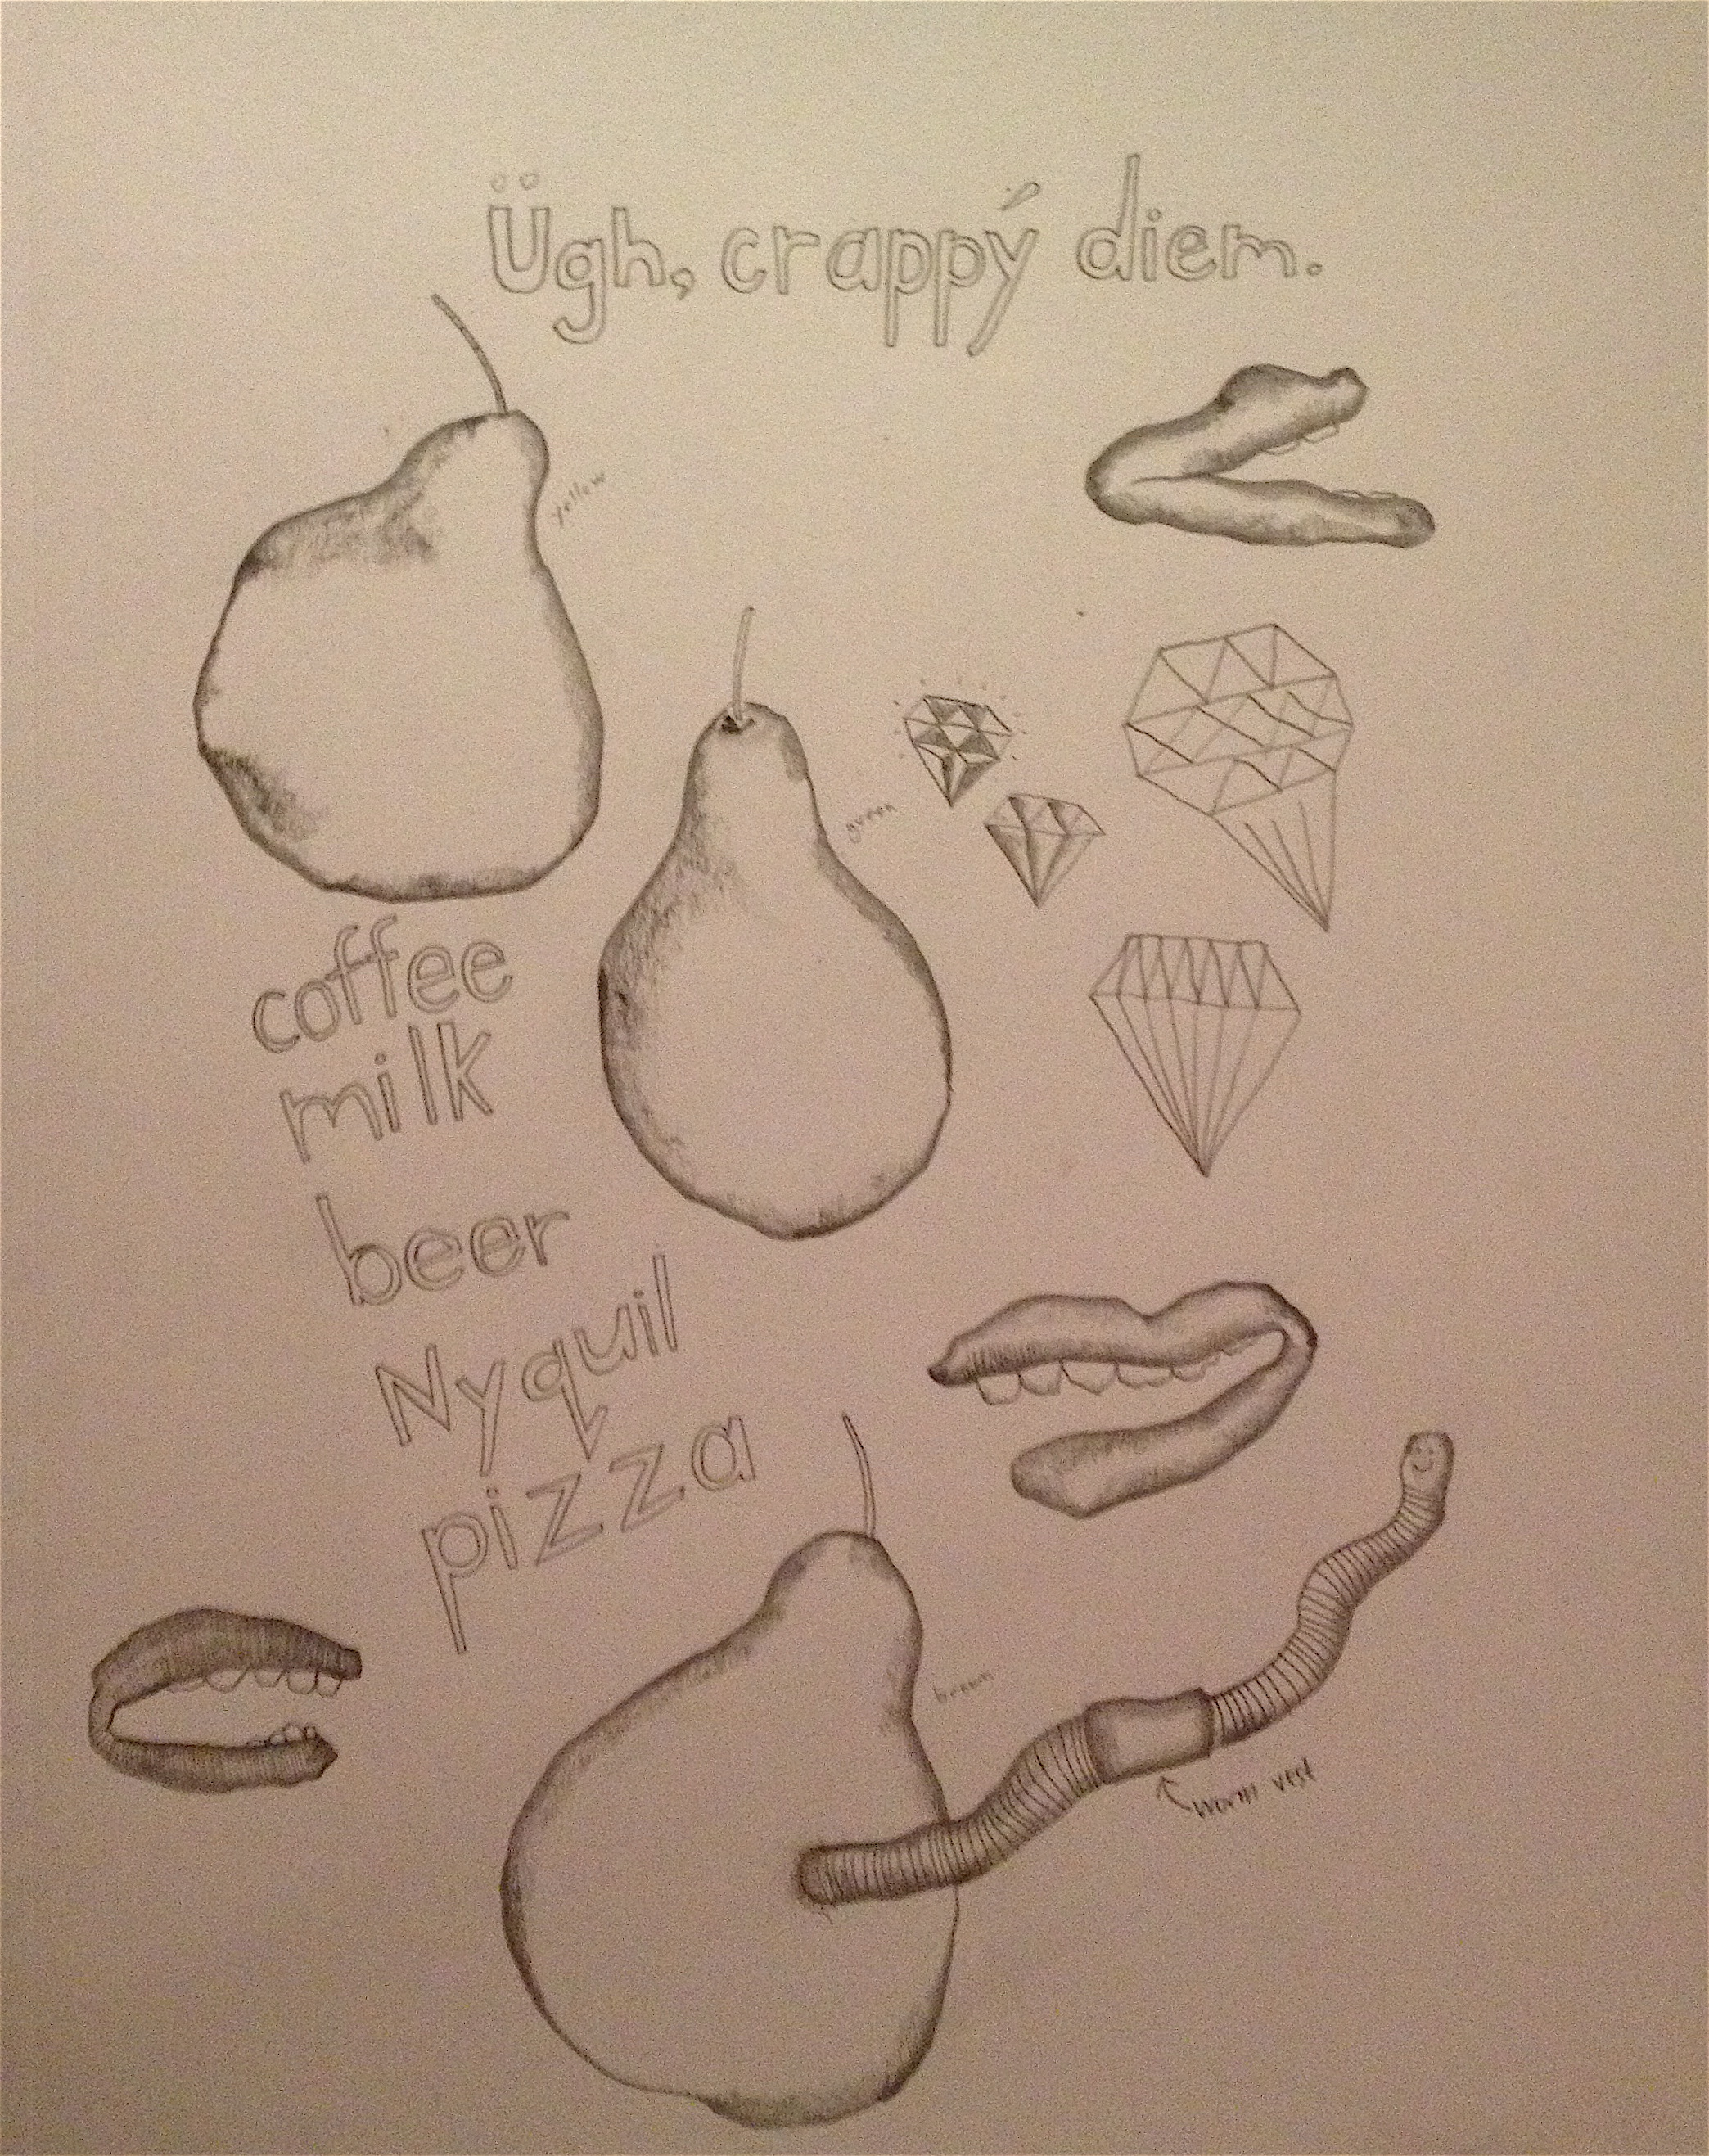 Ügh, crappý diem.
yellow
green
coffee
milk
beer
Nyquil
pizza
brown
worm vest